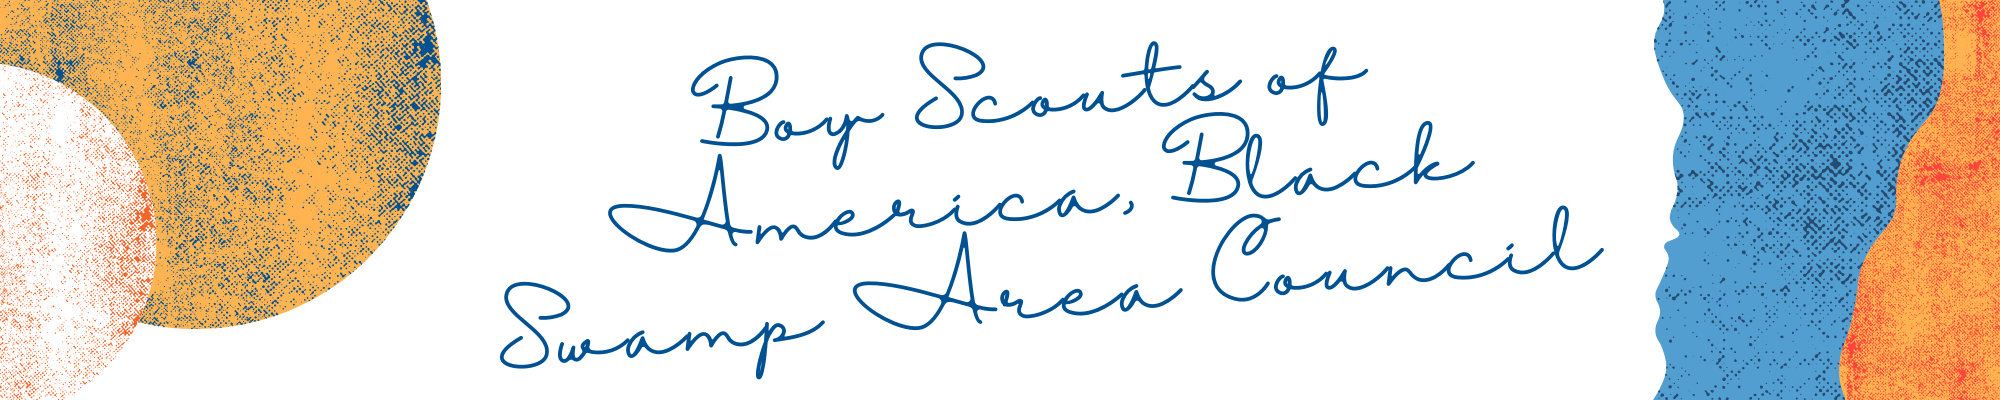 Boy Scouts of
America, Black
Swamp Area Council